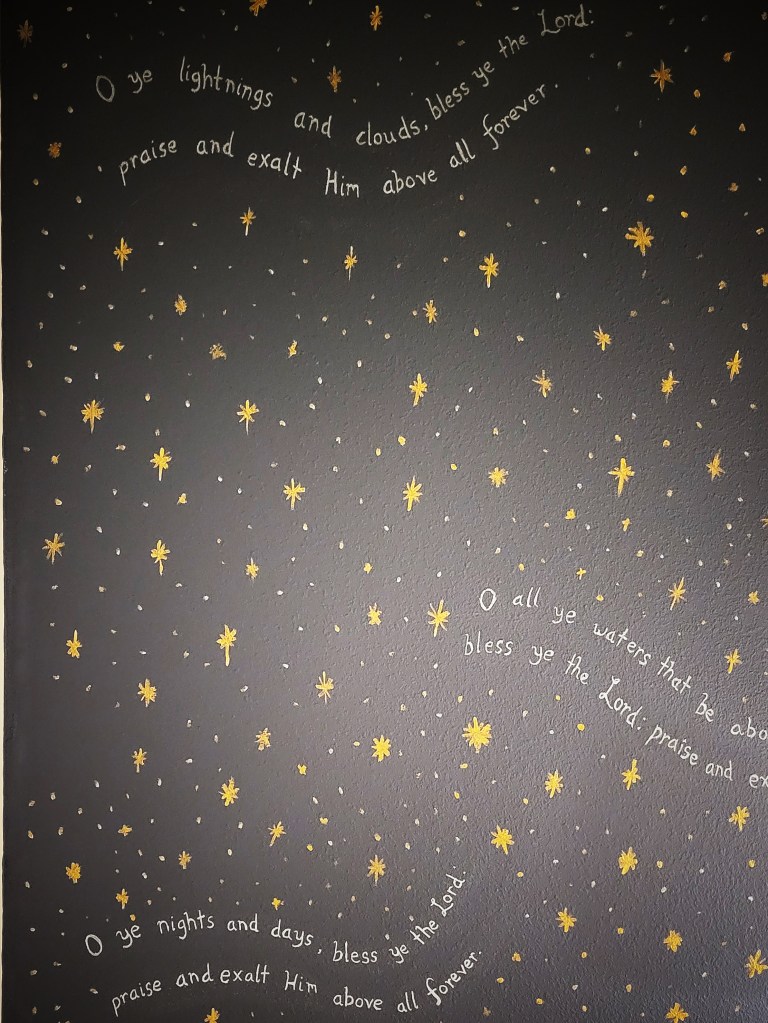 O ye lightnings and clouds, bless ye the Lord:
praise and exalt Him above all forever.
O all ye waters that be
bless ye the Lord: praise and
O ye nights and days, bless ye the Lord:
praise and exalt Him above all forever.